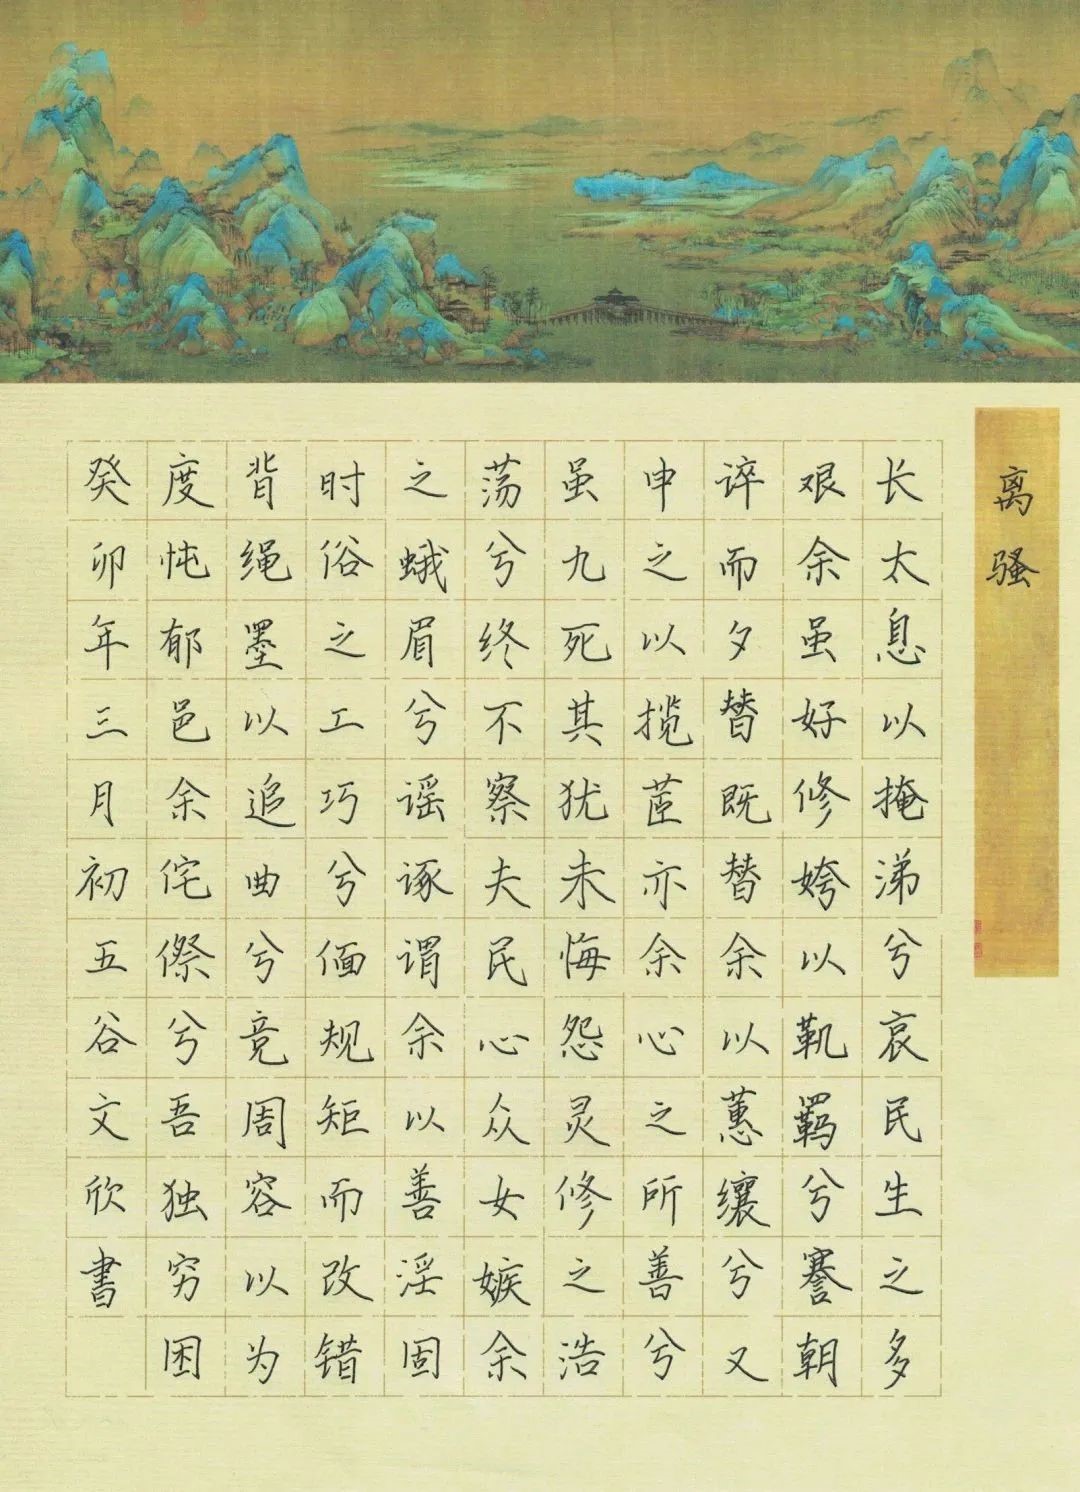 离骚
长太息以掩涕兮哀民生之多
艰余虽好修姱以鞿羁兮謇朝
谇而夕替既替余以蕙纕兮又
申之以揽茝亦余心之所善兮
虽九死其犹未悔怨灵修之浩
荡兮终不察夫民心众女嫉余
之蛾眉兮谣诼谓余以善淫固
时俗之工巧兮偭规矩而改错
背绳墨以追曲兮竞周容以为
度忳郁邑余侘傺兮吾独穷困
癸卯年三月初五谷文欣書